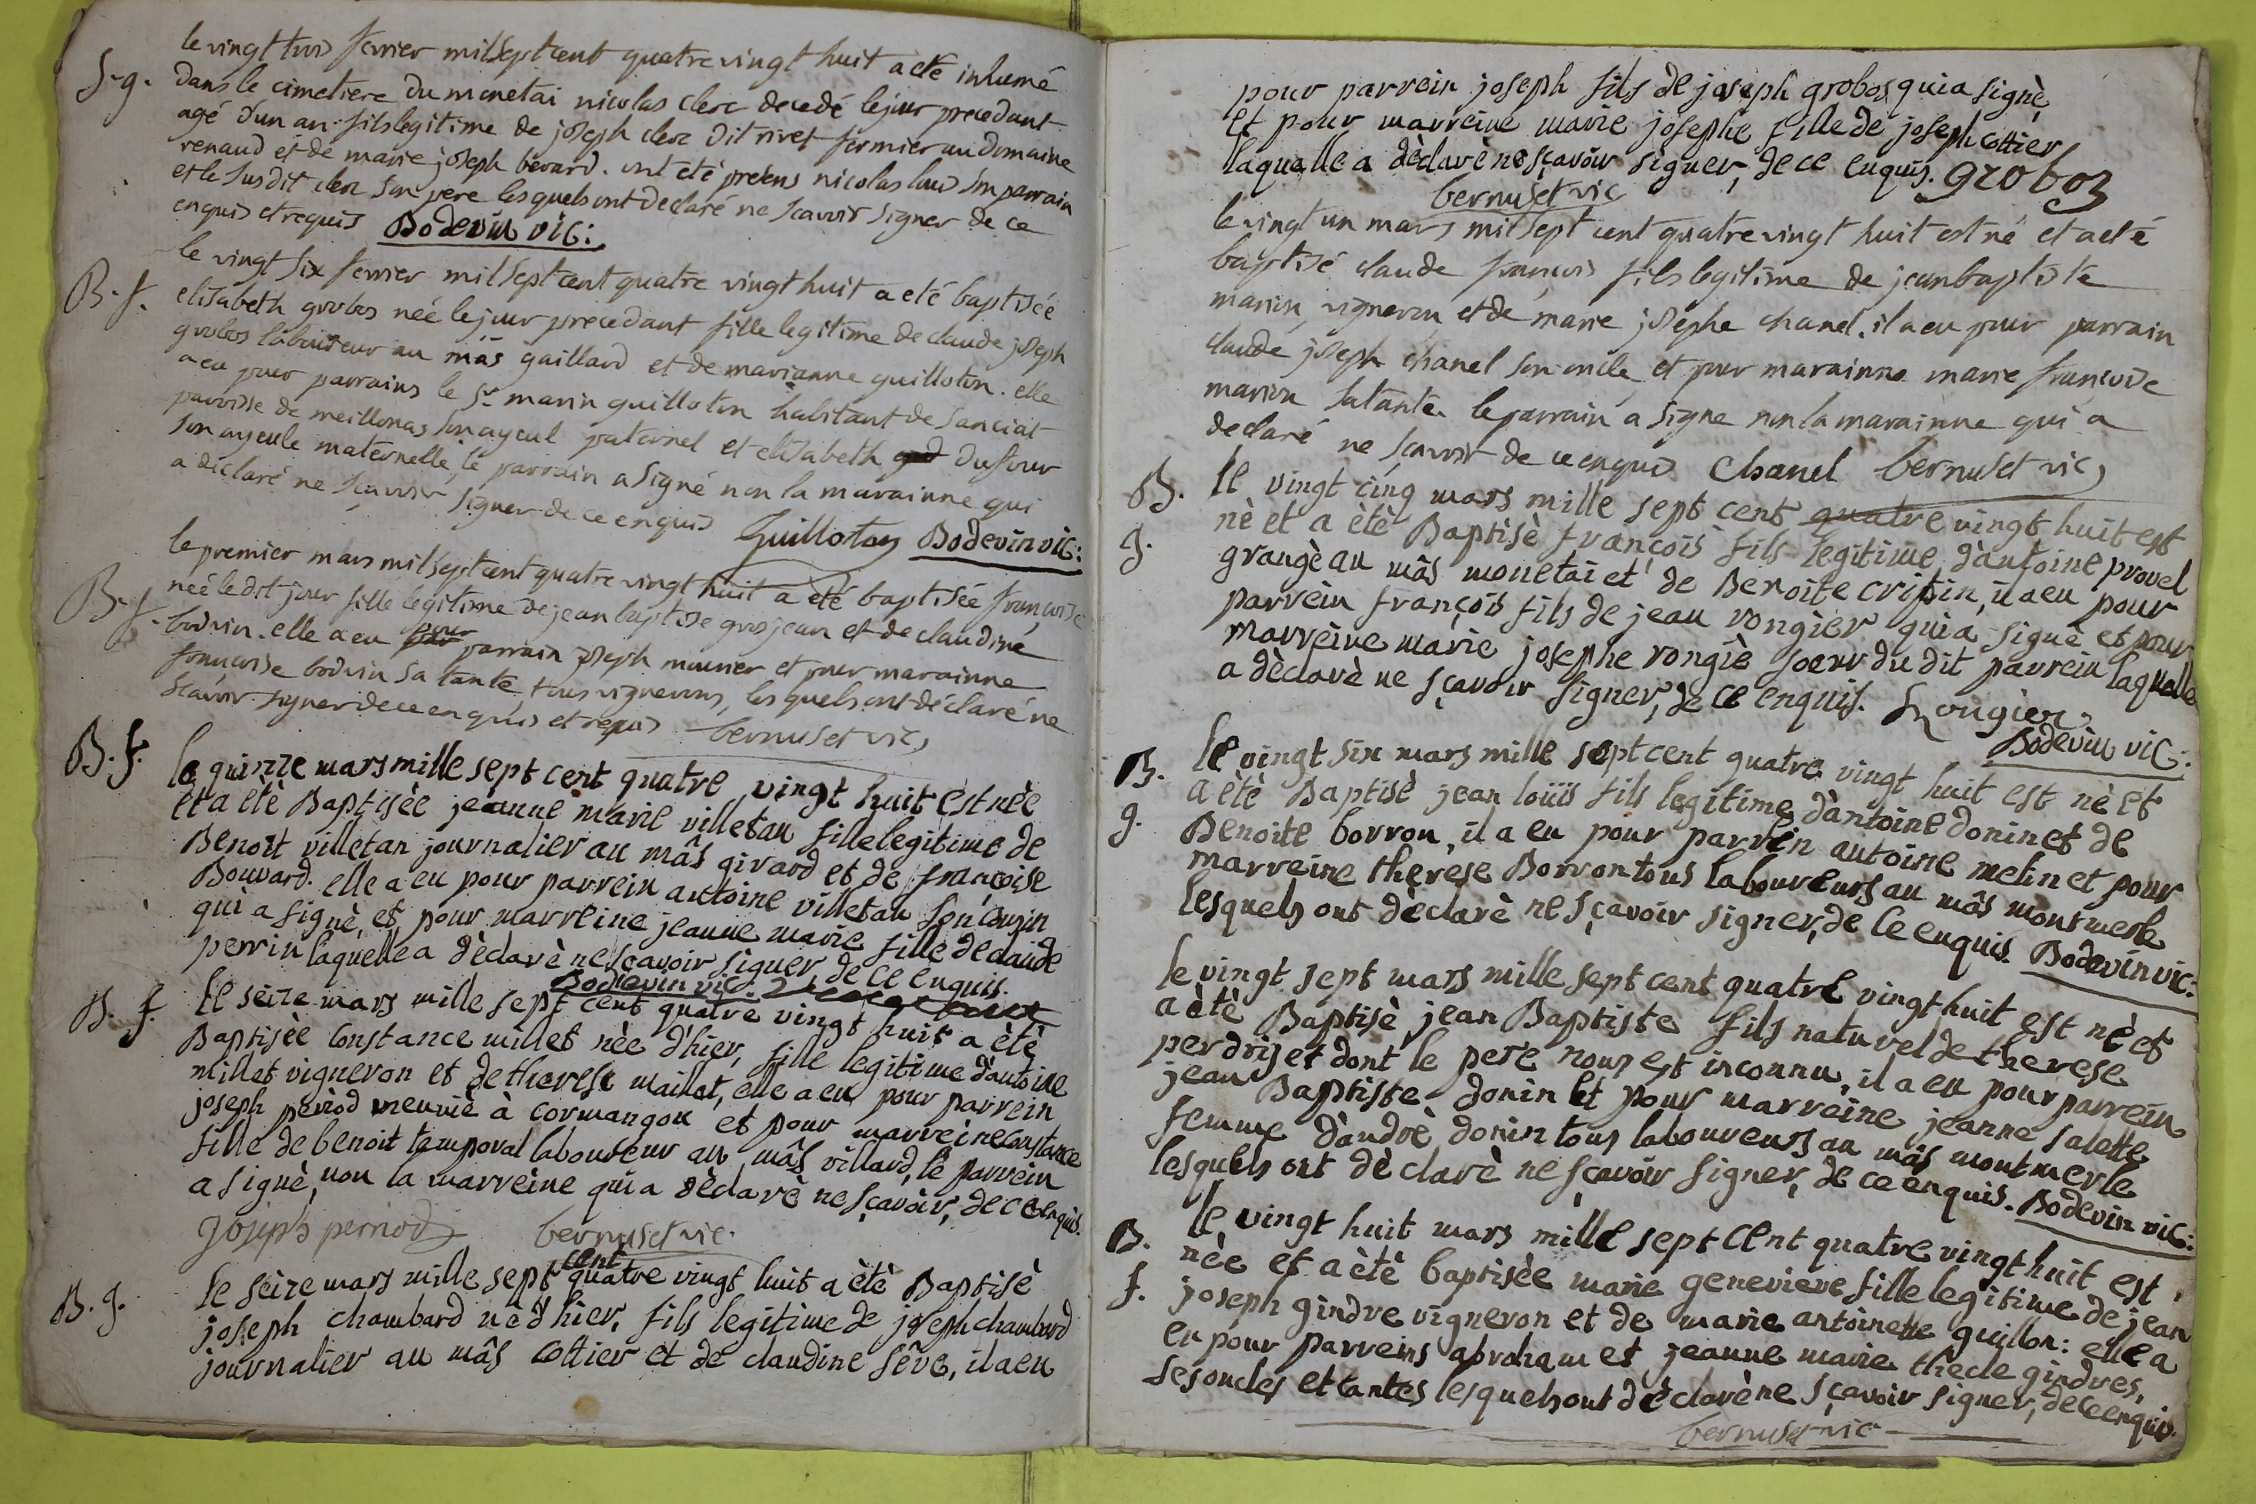 le vingt trois fevrier mil sept cent quatre vingt huit a eté inhumé
S. g. dans le cimetiere du monetai nicolas clerc decedé le jour precedant
agé d'un an fils legitime de joseph clerc dit rivet fermier au domaine
renaud et de marie joseph berard. ont été présens nicolas son parrain
et le susdit clerc son pere lesquels ont declaré ne scavoir signer de ce
enquis et requis Bodevin vic:
le vingt six fevrier mil sept cent quatre vingt huit a eté baptisée
B. f. elisabeth grobos née le jour precedant fille legitime de claude joseph
grobos laboureur au mâs gaillard et de marianne guilloton. elle
a eu pour parrains le sr marin guilloton habitant de sanciat
paroisse de meillonas son ayeul paternel et elisabeth dufour
son ayeule maternelle, le parrain a signé non la marainne qui
a déclaré ne sçavoir signer de ce enquis Guilloton Bodevin vic:
le premier mars mil sept cent quatre vingt huit a été baptisée françoise
B. f. née le dit jour fille legitime de jean baptiste grosjean et de claudine
bodvin. elle a eu pour parrain joseph meunier et pour marainne
françoise bodvin sa tante, tous vignerons, lesquels ont déclaré ne
scavoir signer de ce enquis et requis bernuset vic,
B. f. le quinze mars mille sept cent quatre vingt huit est nèe
et a etè Baptisèe jeanne marie villetan fille legitime de
Benoit villetan journalier au mâs girard et de françoise
Bouvard. elle a eu pour parrein antoine villetan son cousin
qui a signè, et pour marreine jeanne marie fille de claude
perrin laquelle a dèclarè ne sçavoir signer, de ce enquis.
Bodevin vic.
B. f. le seize mars mille sept cent quatre vingt huit a ètè
Baptisèe constance millet nèe d'hier, fille legitime d'antoine
millet vigneron et de therese maillat, elle a eu pour parrein
joseph period meuniè à cormangou et pour marreine constance
fille de benoit tamporal laboureur au mâs villard, le parrein
a signè, non la marreine qui a dèclarè ne sçavoir, de ce enquis.
Joseph perriod bernuset vic.
cent
B. g. le seize mars mille sept quatre vingt huit a ètè Baptisè
joseph chambard nè d'hier, fils legitime de joseph chambard
journalier au mâs cottier et de claudine sêve, il a eu
pour parrein joseph fils de joseph grobos qui a signè,
et pour marreine marie josephe fille de joseph cottier
laquelle a dèclarè ne sçavoir signer, de ce enquis. groboz
bernuset vic
le vingt un mars mil sept cent quatre vingt huit est né et a eté
baptisé claude françois fils legitime de jean baptiste
marion, vigneron et de marie josephe chanel. il a eu pour parrain
claude joseph chanel son oncle, et pour marainne marie françoise
marion sa tante. le parrain a signe non la marainne qui a
declaré ne sçavoir de ce enquis Chanel bernuset vic,
B. le vingt cinq mars mille sept cent quatre vingt huit est
g. nè et a ètè Baptisè françois fils legitime d'antoine provel
grangè au mâs monetai et de Benoite cripin, il a eu pour
parrein françois fils de jean rongier qui a signè et pour
marreine marie josephe rongiè soeur du dit parrein laquelle
a dèclarè ne sçavoir signer, de ce enquis. f rougier
Bodevin vic:
B. le vingt six mars mille sept cent quatre vingt huit est nè et
g. a ètè Baptisè jean loüis fils legitime d'antoine donin et de
Benoite borron, il a eu pour parrein antoine melin et pour
marreine therese Borron tous laboureurs au mâs montmerle
lesquels ont dèclarè ne sçavoir signer, de ce enquis. Bodevin vic:
le vingt sept mars mille sept cent quatre vingt huit est nè et
a ètè Baptisè jean Baptiste fils naturel de therese
perdrix et dont le pere nous est inconnu, il a eu pour parrein
jean Baptiste donin et pour marreine jeanne salette
femme d'andrè donin tous laboureurs au mâs montmerle
lesquels ont dèclarè ne sçavoir signer, de ce enquis. Bodevin vic:
B. le vingt huit mars mille sept cent quatre vingt huit est
f. nèe et a ètè baptisèe marie genevieve fille legitime de jean
joseph gindre vigneron et de marie antoinette guillon: elle a
eu pour parreins abraham et jeanne marie thecle gindres,
ses oncles et tantes lesquels ont dèclarè ne sçavoir signer, de ce enquis.
bernuset vic